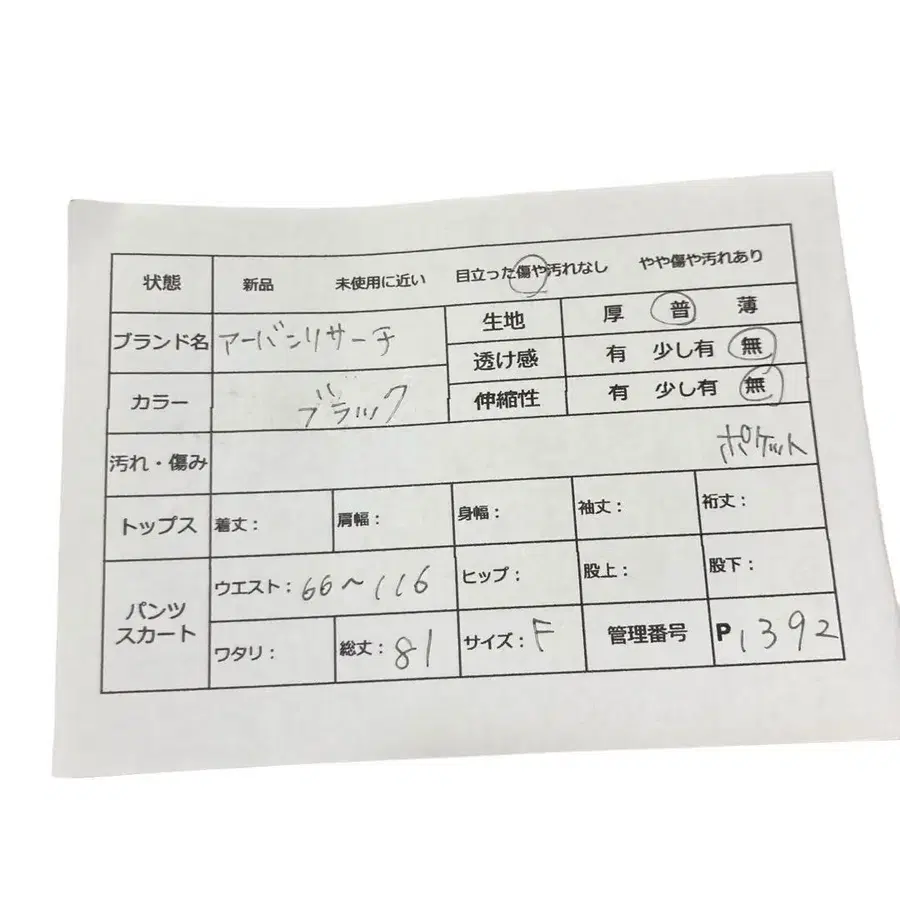 状態 新品 未使用に近い 目立った傷や汚れなし やや傷や汚れあり
ブランド名 アーバンリサーチ 生地 厚 普 薄
透け感 有 少し有 無
カラー ブラック 伸縮性 有 少し有 無
汚れ・傷み ポケット
トップス 着丈: 肩幅: 身幅: 袖丈: 裄丈:
パンツ スカート ウエスト: 66〜116 ヒップ: 股上: 股下:
ワタリ: 総丈: 81 サイズ: F 管理番号 P1392